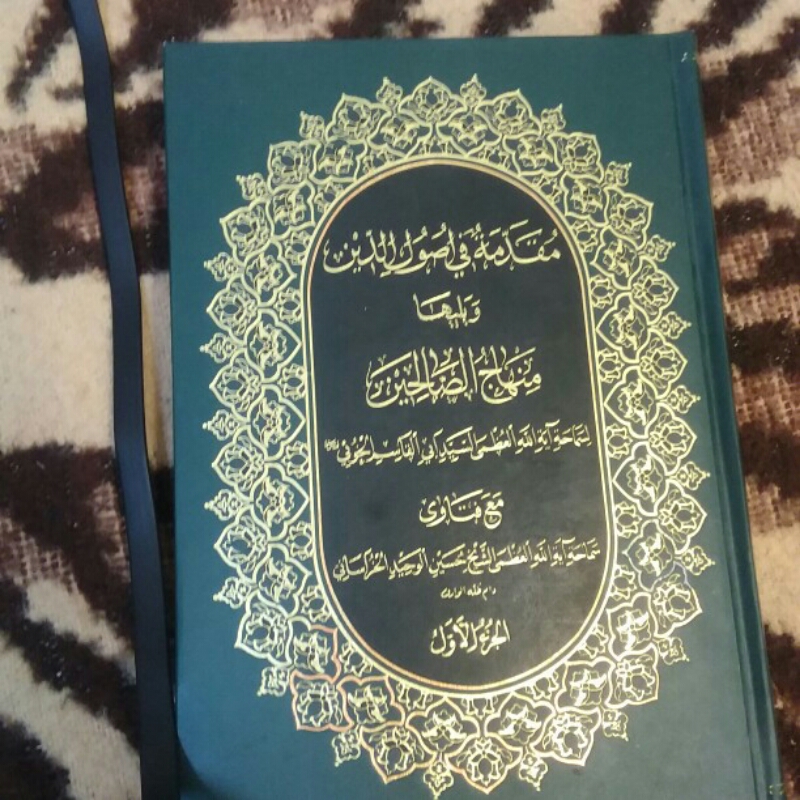 مُقَدِّمَةٌ فِي اُصُولِ الدِّيْنِ
وَيَلِيهَا
مِنْهَاجُ الصَّالِحِيْنَ
لِسَمَاحَةِ آيَةِ اللهِ الْعُظْمَى السَّيِّدِ أَبِي الْقَاسِمِ الْخُوئِي
مَعَ فَتَاوىٰ
سَمَاحَةِ آيَةِ اللهِ الْعُظْمَى الشَّيْخِ حُسَيْنِ الْوَحِيْدِ الْخُرَاسَانِي
دام ظله الوارف
الجُزْءُ الأَوَّل